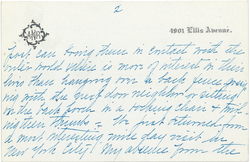 2
4901 Ellis Avenue.
can bring them in contact with the
world which is more of interest in their
lives than hanging on a back fence
with the next door neighbor or sitting
on the back porch in a rocking chair &
their thumbs - I've just returned from
a most interesting nine day visit in
New York City! My absence from the